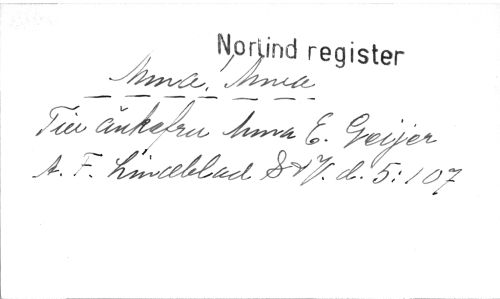 Norlind register
Anna, Anna
Till änkefru Anna E. Geijer
A. F. Lindblad S & V. d. 5: 107